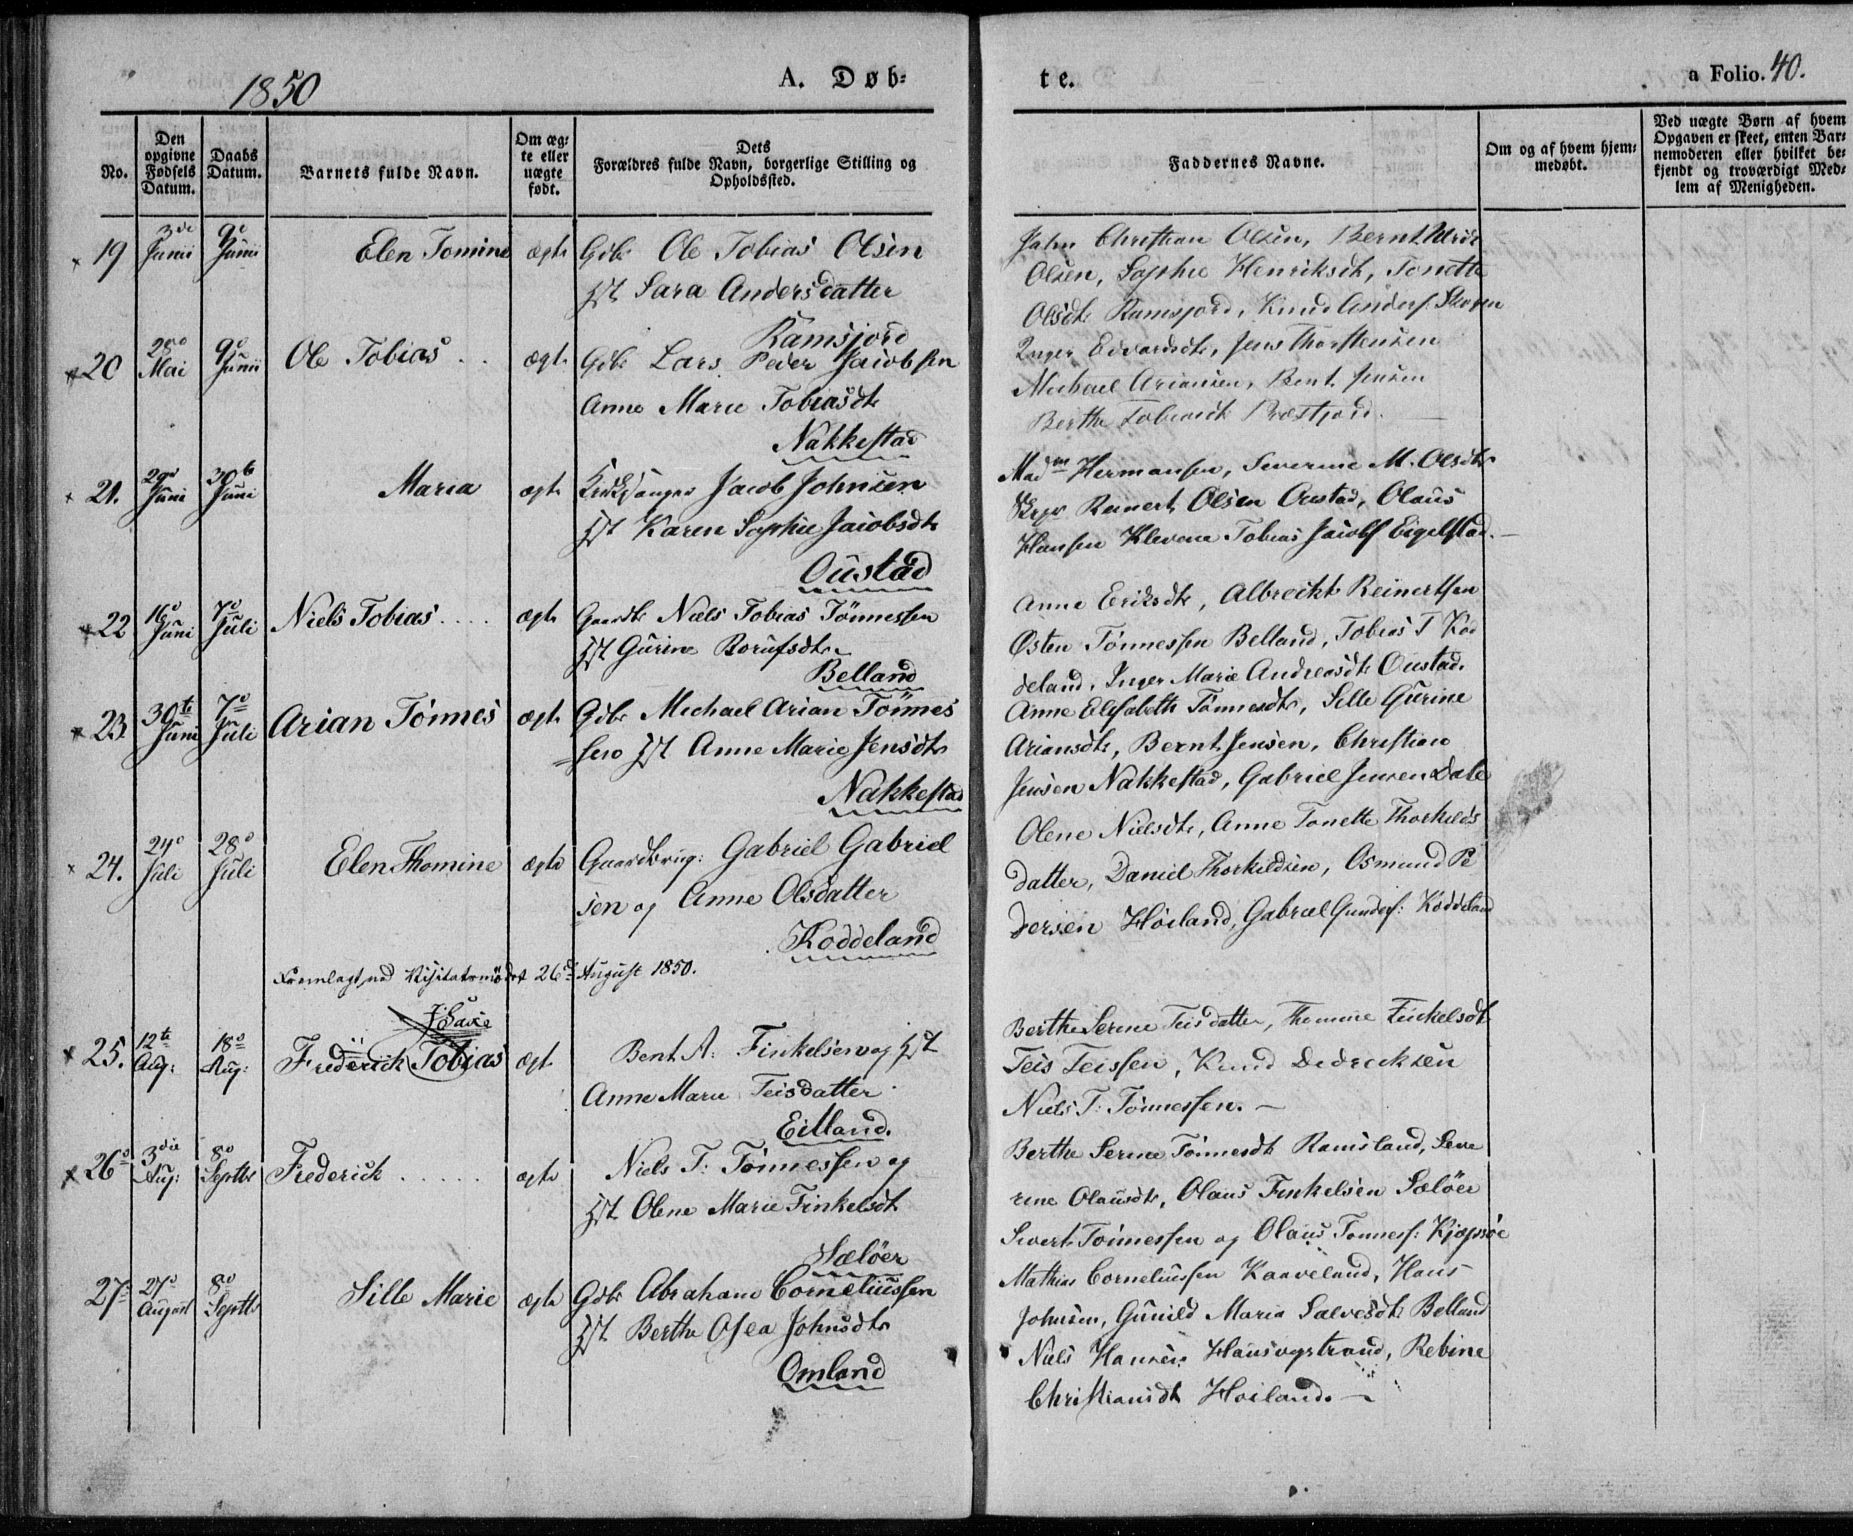 1850
A. Døb-
te.
a Folio. 40.
No.
Den opgivne Fødsels Datum.
Daabs Datum.
Barnets fulde Navn.
Om ægte eller uægte født.
Dets Forældres fulde Navn, borgerlige Stilling og Opholdssted.
Faddernes Navne.
Om og af hvem hjemmedøbt.
Ved uægte Børn af hvem Opgaven er skeet, enten Barnemoderen eller hvilket bekjendt og troværdigt Medlem af Menigheden.
19 3de Junii 9e Junii Elen Tomine ægte Gdbr Ole Tobias Olsen
Sara Andersdatter
Ramsjord
Christian Olsen, Bernt
Olsen, Sophie Henriksdt, Tonette
Olsdt Ramsjord, Knud Anders.
20 Mai 9e Junii Ole Tobias . . ægte Gdbr Lars Peder Jacobsen
Anne Marie Tobiasdt
Nakkestad
Inger Edvardsdt, Jens Thorstensen
Michael Ariansen, Bent Jensen
Berthe Tobiasdt
21. 29d Juni 30t Juni Maria ægte Kirkesanger Jacob Johnsen
Karen Sophie Jacobsdt
Oustad
Madm Hermansen, Severine M. Olsdt
Reinert Olsen Oustad, Olaus
Hansen Klevene Tobias Jacobs Eigelstad.
22 16d Juni 7d Juli Niels Tobias . . . . ægte Gaardbr Niels Tobias Tönnessen
Gurine Rorufsdt
Belland
Anne Eriksdt, Albrecht Reinertsen
Østen Tönnessen Belland, Tobias T Kod
deland, Inger Marie Andreasdt Oustad.
23 30te Juni 7d Juli Arian Tönnes ægte Gdbr Michael Arian Tönnes
sen Anne Marie Jensdt
Nakkestad
Anne Elisabeth Tönnesdt, Sille Gurine
Ariansdt, Bernt Jensen, Christian
Jensen Nakkestad, Gabriel Jensen Dale
24. 24d Juli 28d Juli Elen Thomine ægte Gaardbrug: Gabriel Gabriel
sen og Anne Olsdatter
Koddeland
Olene Nielsdt, Anne Tonette Thorkilds
datter, Daniel Thorkildsen, Osmund Pe
dersen Höiland, Gabriel Gunders: Koddeland
Fremlagt ved Visitatsmödet 26d August 1850.
25. 12te Aug: 18d Aug: Frederick Tobias ægt Bent A: Finkelsen og
Anne Marie Teisdatter
Eitland.
Berthe Serine Teisdatter, Thomine Finkelsdt
Teis Teissen, Knud Dedrecksen
Niels T: Tönnessen. —
26d 3die Aug: 8d Septbr Frederick . . . . . ægte Niels T: Tönnessen og
Olene Marie Finkelsdt
Sælöer
Berthe Serine Tönnesdt Ramsland, Seve
rine Olausdt, Olaus Finkelsen Sælöer
Sivert Tönnessen og Olaus Tönness: Kjøpsöe
27 27d August 8d Septbr Sille Marie ægte Gdbr Abraham Corneliussen
Berthe Osea Johnsdt
Omland
Mathias Corneliussen Kaaveland, Hans
Johnsen, Gunild Maria Salvesdt Belland
Niels Hansen Hausvigstrand, Rebine
Christiansdt Höiland. —